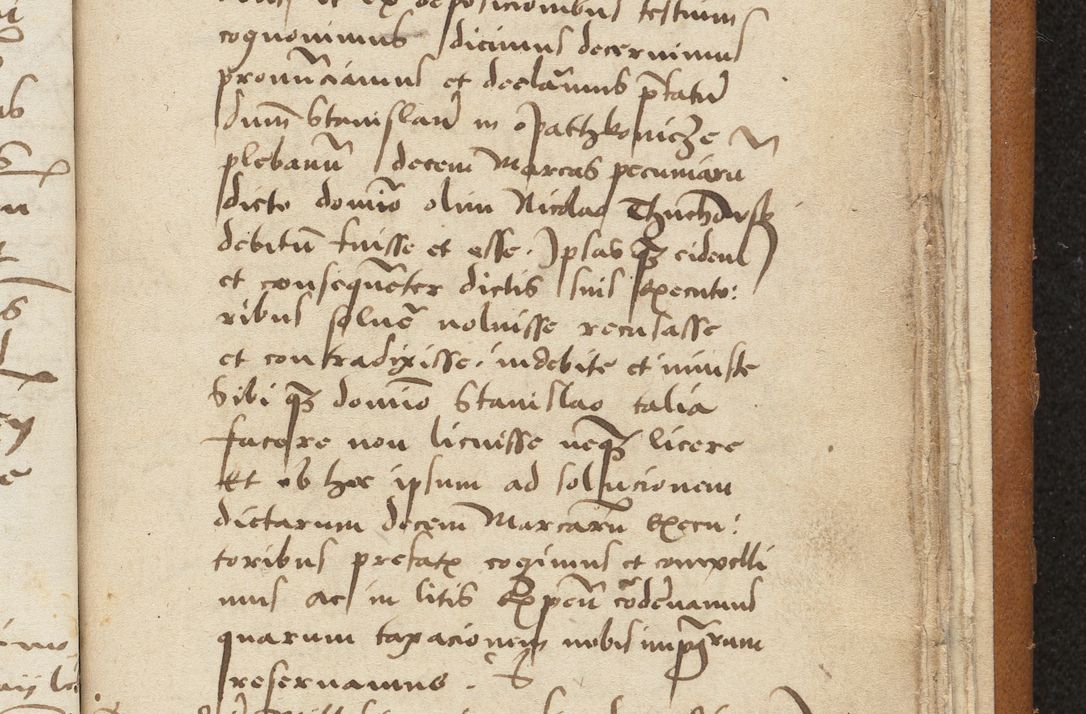 et ex deposicionibus testium
cognovimus dicimus decernimus
pronūciamus et declaramus p̄fatū
dnūm Stanislaū in opathkoviczE
plebanū decem Marcas pecuniarū
dicto domīo olim Nicolao
debitū fuisse et esse. Ipsas q̨ eidem
et consequēter dictis suis Executo:
ribus solvē noluisse recusasse
et contradixisse. indebite et iniuste
Sibi q̨ domīo Stanislao talia
facere non licuisse neq̨ licere
Et ob hoc ipsum ad solucionem
dictarum decem Marcarū Execu:
toribus prefatꝭ cogimus et compelli
mus ac in litis Expeñ cōdēnamus
quarum taxacionem nobis imp̄rum
reservamus.